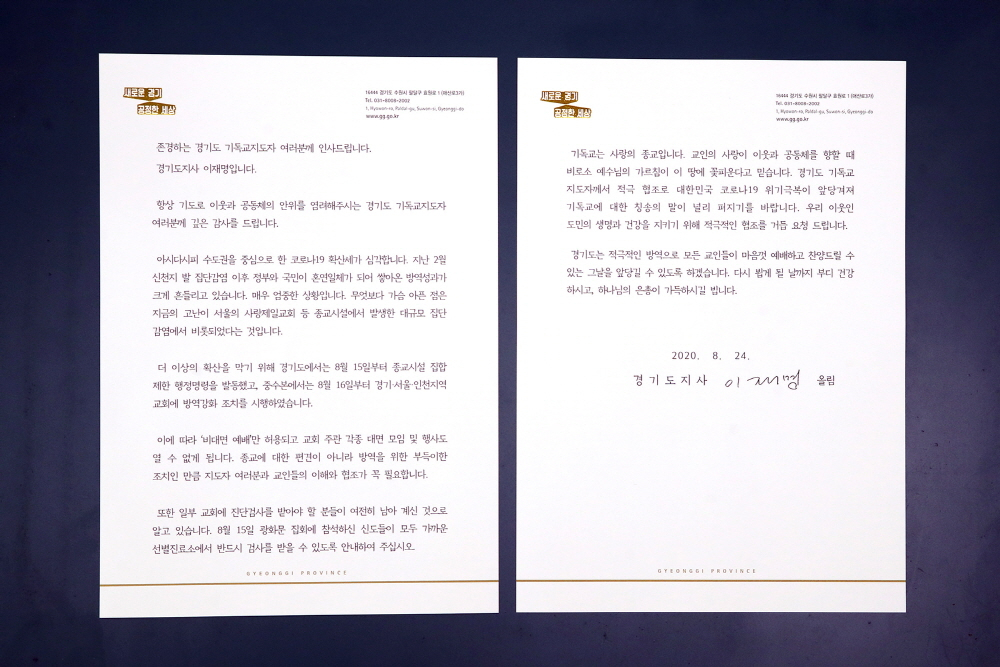 새로운 경기
공정한 세상
16444 경기도 수원시 팔달구 효원로 1 (매산로3가)
Tel. 031-8008-2002
1, Hyowon-ro, Paldal-gu, Suwon-si, Gyeonggi-do
www.gg.go.kr
존경하는 경기도 기독교지도자 여러분께 인사드립니다.
경기도지사 이재명입니다.
항상 기도로 이웃과 공동체의 안위를 염려해주시는 경기도 기독교지도자
여러분께 깊은 감사를 드립니다.
아시다시피 수도권을 중심으로 한 코로나19 확산세가 심각합니다. 지난 2월
신천지 발 집단감염 이후 정부와 국민이 혼연일체가 되어 쌓아온 방역성과가
크게 흔들리고 있습니다. 매우 엄중한 상황입니다. 무엇보다 가슴 아픈 점은
지금의 고난이 서울의 사랑제일교회 등 종교시설에서 발생한 대규모 집단
감염에서 비롯되었다는 것입니다.
더 이상의 확산을 막기 위해 경기도에서는 8월 15일부터 종교시설 집합
제한 행정명령을 발동했고, 중수본에서는 8월 16일부터 경기·서울·인천지역
교회에 방역강화 조치를 시행하였습니다.
이에 따라 '비대면 예배'만 허용되고 교회 주관 각종 대면 모임 및 행사도
열 수 없게 됩니다. 종교에 대한 편견이 아니라 방역을 위한 부득이한
조치인 만큼 지도자 여러분과 교인들의 이해와 협조가 꼭 필요합니다.
또한 일부 교회에 진단검사를 받아야 할 분들이 여전히 남아 계신 것으로
알고 있습니다. 8월 15일 광화문 집회에 참석하신 신도들이 모두 가까운
선별진료소에서 반드시 검사를 받을 수 있도록 안내하여 주십시오.
GYEONGGI PROVINCE
새로운 경기
공정한 세상
16444 경기도 수원시 팔달구 효원로 1 (매산로3가)
Tel. 031-8008-2002
1, Hyowon-ro, Paldal-gu, Suwon-si, Gyeonggi-do
www.gg.go.kr
기독교는 사랑의 종교입니다. 교인의 사랑이 이웃과 공동체를 향할 때
비로소 예수님의 가르침이 이 땅에 꽃피운다고 믿습니다. 경기도 기독교
지도자께서 적극 협조로 대한민국 코로나19 위기극복이 앞당겨져
기독교에 대한 칭송의 말이 널리 퍼지기를 바랍니다. 우리 이웃인
도민의 생명과 건강을 지키기 위해 적극적인 협조를 거듭 요청 드립니다.
경기도는 적극적인 방역으로 모든 교인들이 마음껏 예배하고 찬양드릴 수
있는 그날을 앞당길 수 있도록 하겠습니다. 다시 뵙게 될 날까지 부디 건강
하시고, 하나님의 은총이 가득하시길 빕니다.
2020. 8. 24.
경기도지사 이재명 올림
GYEONGGI PROVINCE